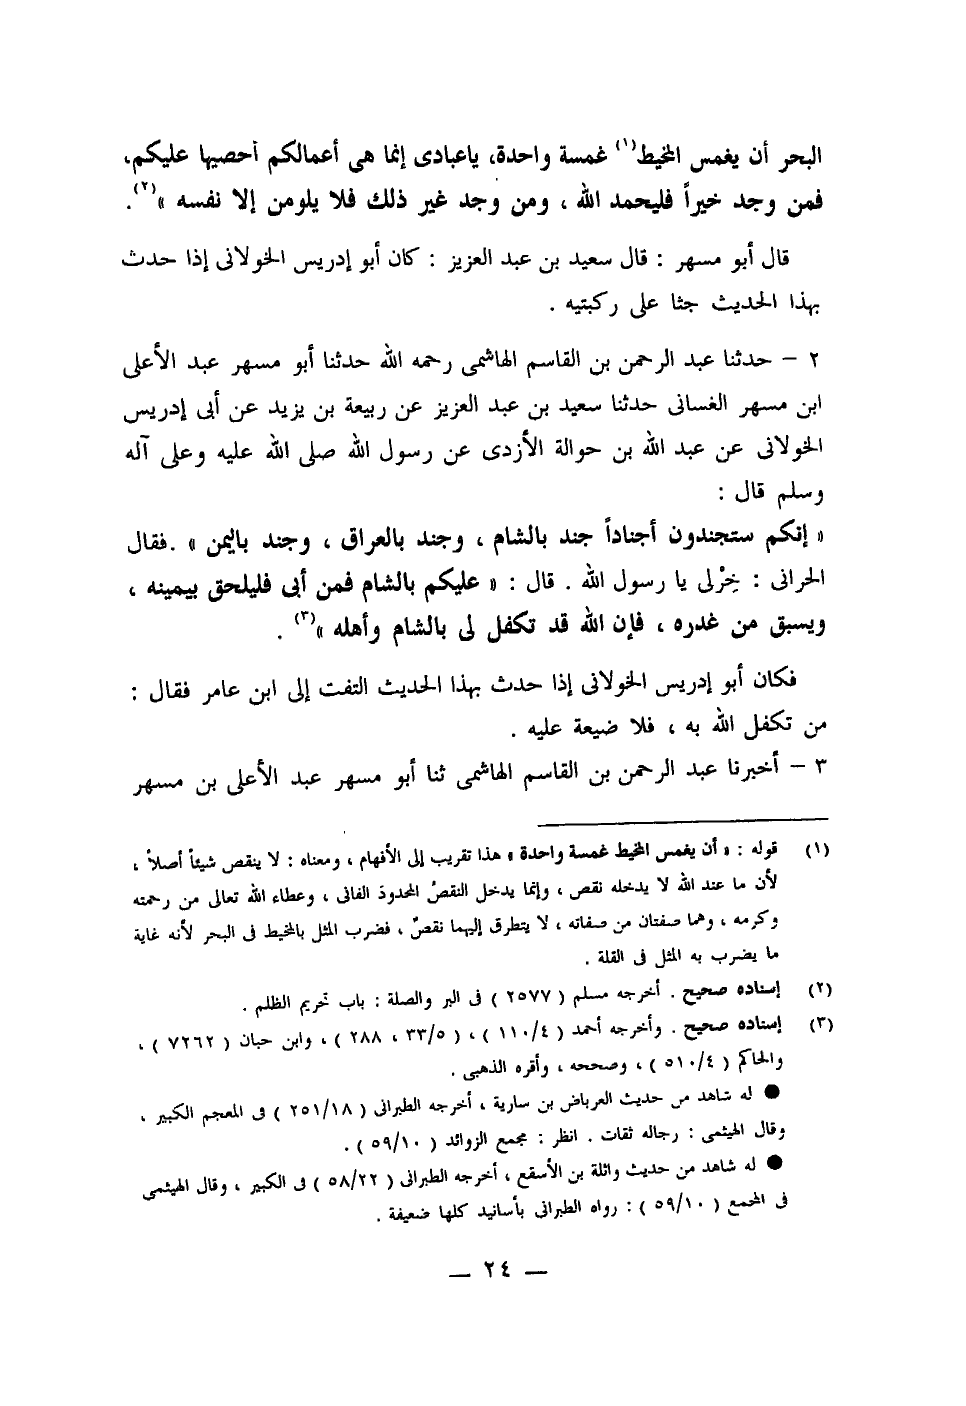 البحر أن يغمس المخيط(١) غمسة واحدة، ياعبادى إنما هى أعمالكم أحصيها عليكم،
فمن وجد خيراً فليحمد الله ، ومن وجد غير ذلك فلا يلومن إلا نفسه »(٢).
قال أبو مسهر : قال سعيد بن عبد العزيز : كان أبو إدريس الخولانى إذا حدث
بهذا الحديث جثا على ركبتيه .
٢ – حدثنا عبد الرحمن بن القاسم الهاشمى رحمه الله حدثنا أبو مسهر عبد الأعلى
ابن مسهر الغسانى حدثنا سعيد بن عبد العزيز عن ربيعة بن يزيد عن أبى إدريس
الخولانى عن عبد الله بن حوالة الأزدى عن رسول الله صلى الله عليه وعلى آله
وسلم قال :
« إنكم ستجندون أجناداً جند بالشام ، وجند بالعراق ، وجند باليمن » .فقال
الحرانى : خِرْلى يا رسول الله . قال : « عليكم بالشام فمن أبى فليلحق بيمينه ،
ويسبق من غدره ، فإن الله قد تكفل لى بالشام وأهله »(٣) .
فكان أبو إدريس الخولانى إذا حدث بهذا الحديث التفت إلى ابن عامر فقال :
من تكفل الله به ، فلا ضيعة عليه .
٣ – أخبرنا عبد الرحمن بن القاسم الهاشمى ثنا أبو مسهر عبد الأعلى بن مسهر
(١) قوله : « أن يغمس المخيط غمسة واحدة » هذا تقريب إلى الأفهام ، ومعناه : لا ينقص شيئاً أصلاً ،
لأن ما عند الله لا يدخله نقص ، وإنما يدخل النقصُ المحدودَ الفانى ، وعطاء الله تعالى من رحمته
وكرمه ، وهما صفتان من صفاته ، لا يتطرق إليهما نقصٌ ، فضرب المثل بالمخيط فى البحر لأنه غاية
ما يضرب به المثل فى القلة .
(٢) إسناده صحيح . أخرجه مسلم ( ٢٥٧٧ ) فى البر والصلة : باب تحريم الظلم .
(٣) إسناده صحيح . وأخرجه أحمد ( ١١٠/٤ ) ، ( ٣٣/٥ ، ٢٨٨ ) ، وابن حبان ( ٧٢٦٢ ) ،
والحاكم ( ٥١٠/٤ ) ، وصححه ، وأقره الذهبى .
● له شاهد من حديث العرباض بن سارية ، أخرجه الطبرانى ( ٢٥١/١٨ ) فى المعجم الكبير ،
وقال الهيثمى : رجاله ثقات . انظر : مجمع الزوائد ( ٥٩/١٠ ) .
● له شاهد من حديث واثلة بن الأسقع ، أخرجه الطبرانى ( ٥٨/٢٢ ) فى الكبير ، وقال الهيثمى
فى المجمع ( ٥٩/١٠ ) : رواه الطبرانى بأسانيد كلها ضعيفة .
— ٢٤ —